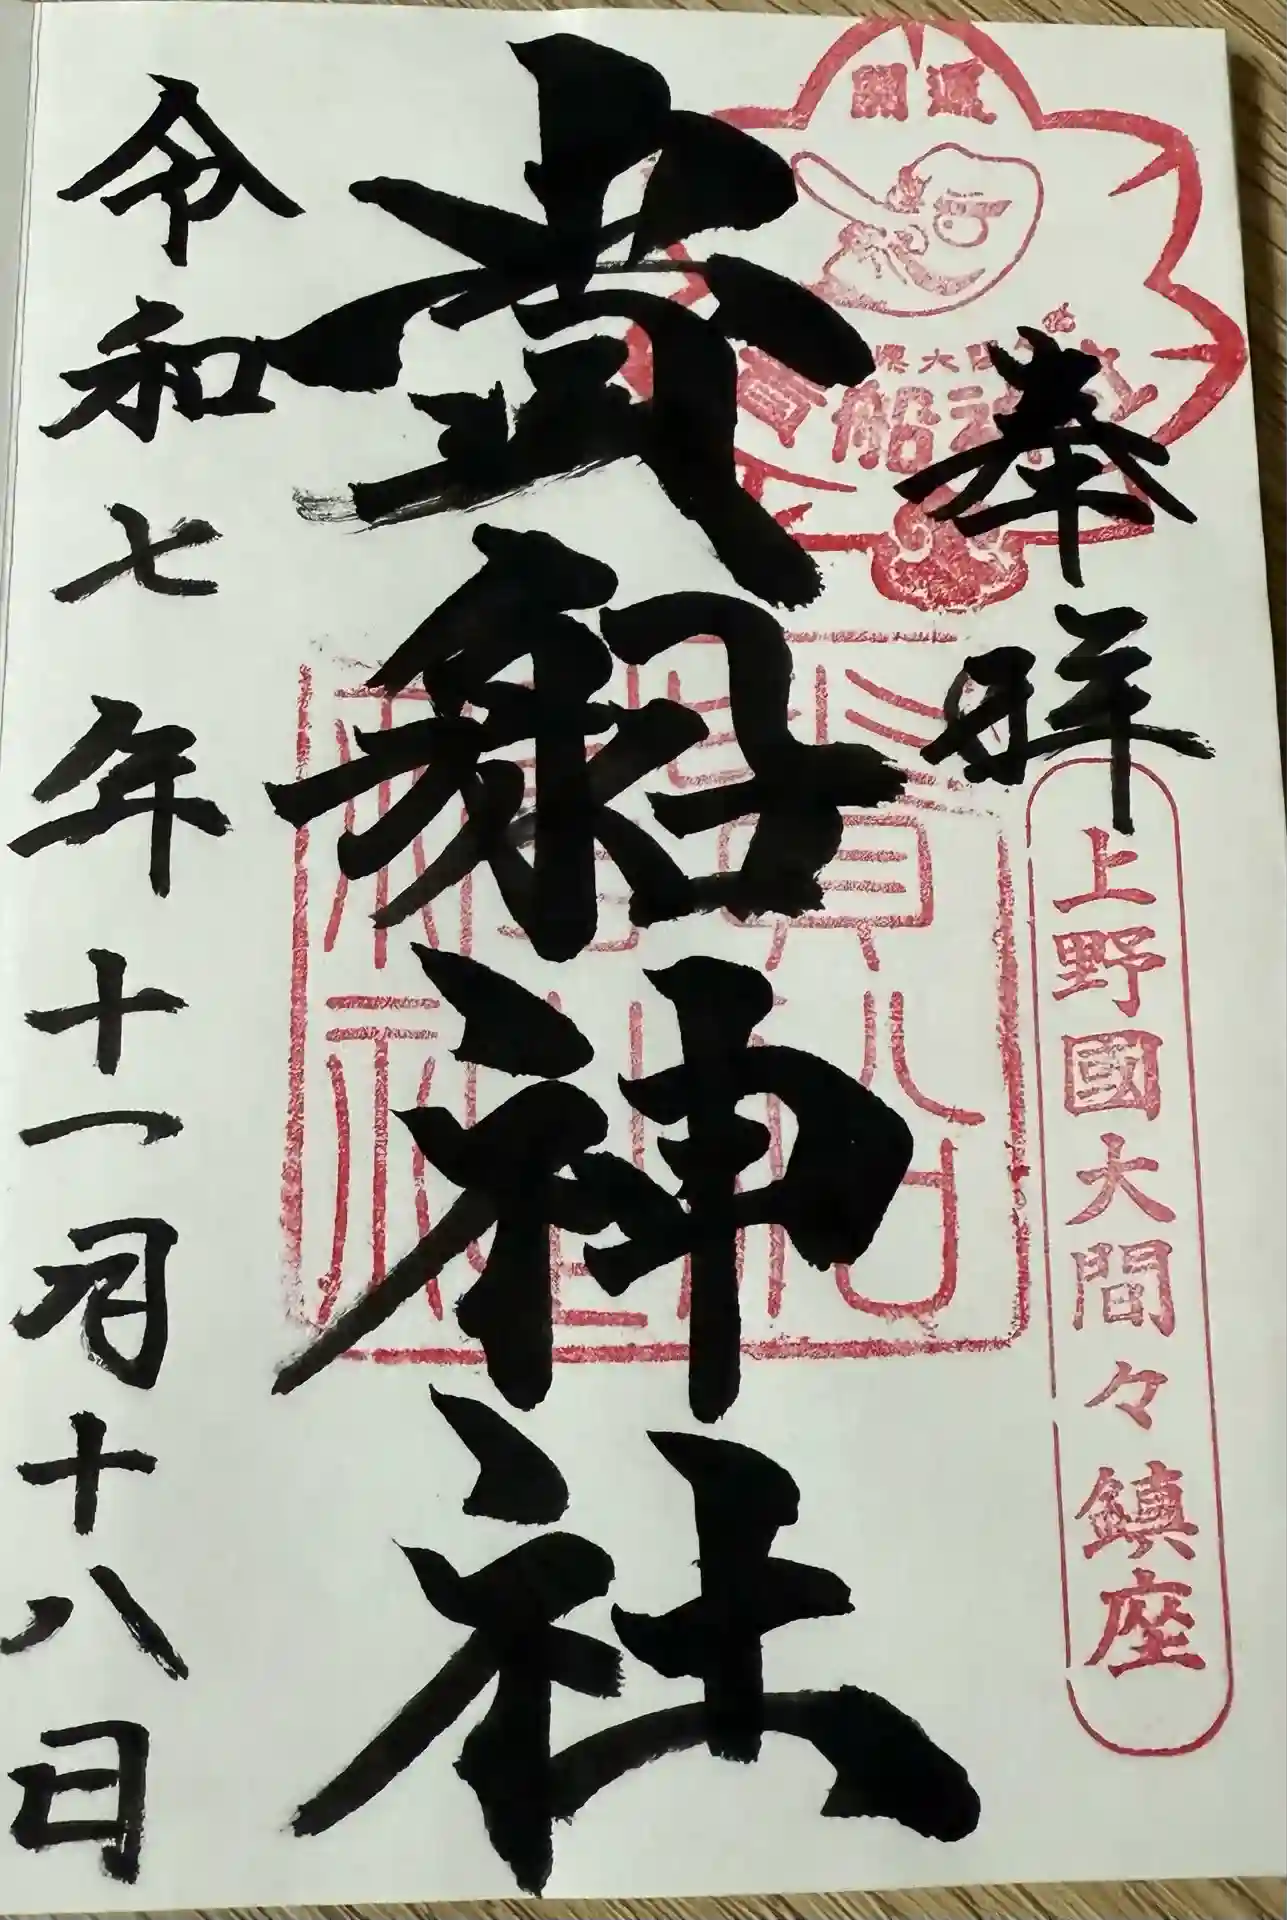 奉拝
開運
貴船神社
上野國大間々鎮座
貴船神社
令和七年十一月十八日